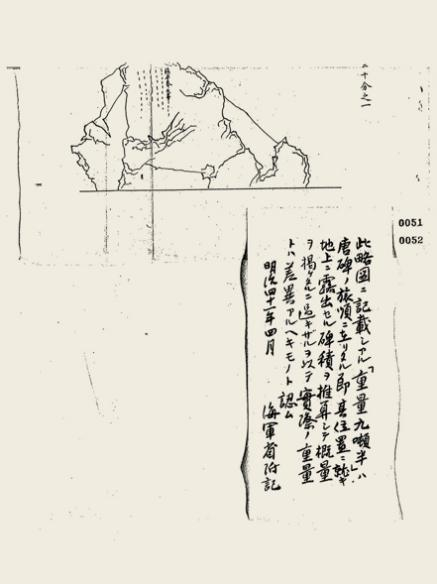 二十分之一
0051
0052
此略図ニ記載シアル「重量九噸半」ハ
唐碑ノ旅順ニ在リタル即其位置ニ就キ
地上ニ露出セル碑積ヲ推算シテ概量
ヲ掲ケタルニ過キサルヲ以テ實際ノ重量
トハ差異アルヘキモノト認ム
明治四十一年四月
海軍省附記